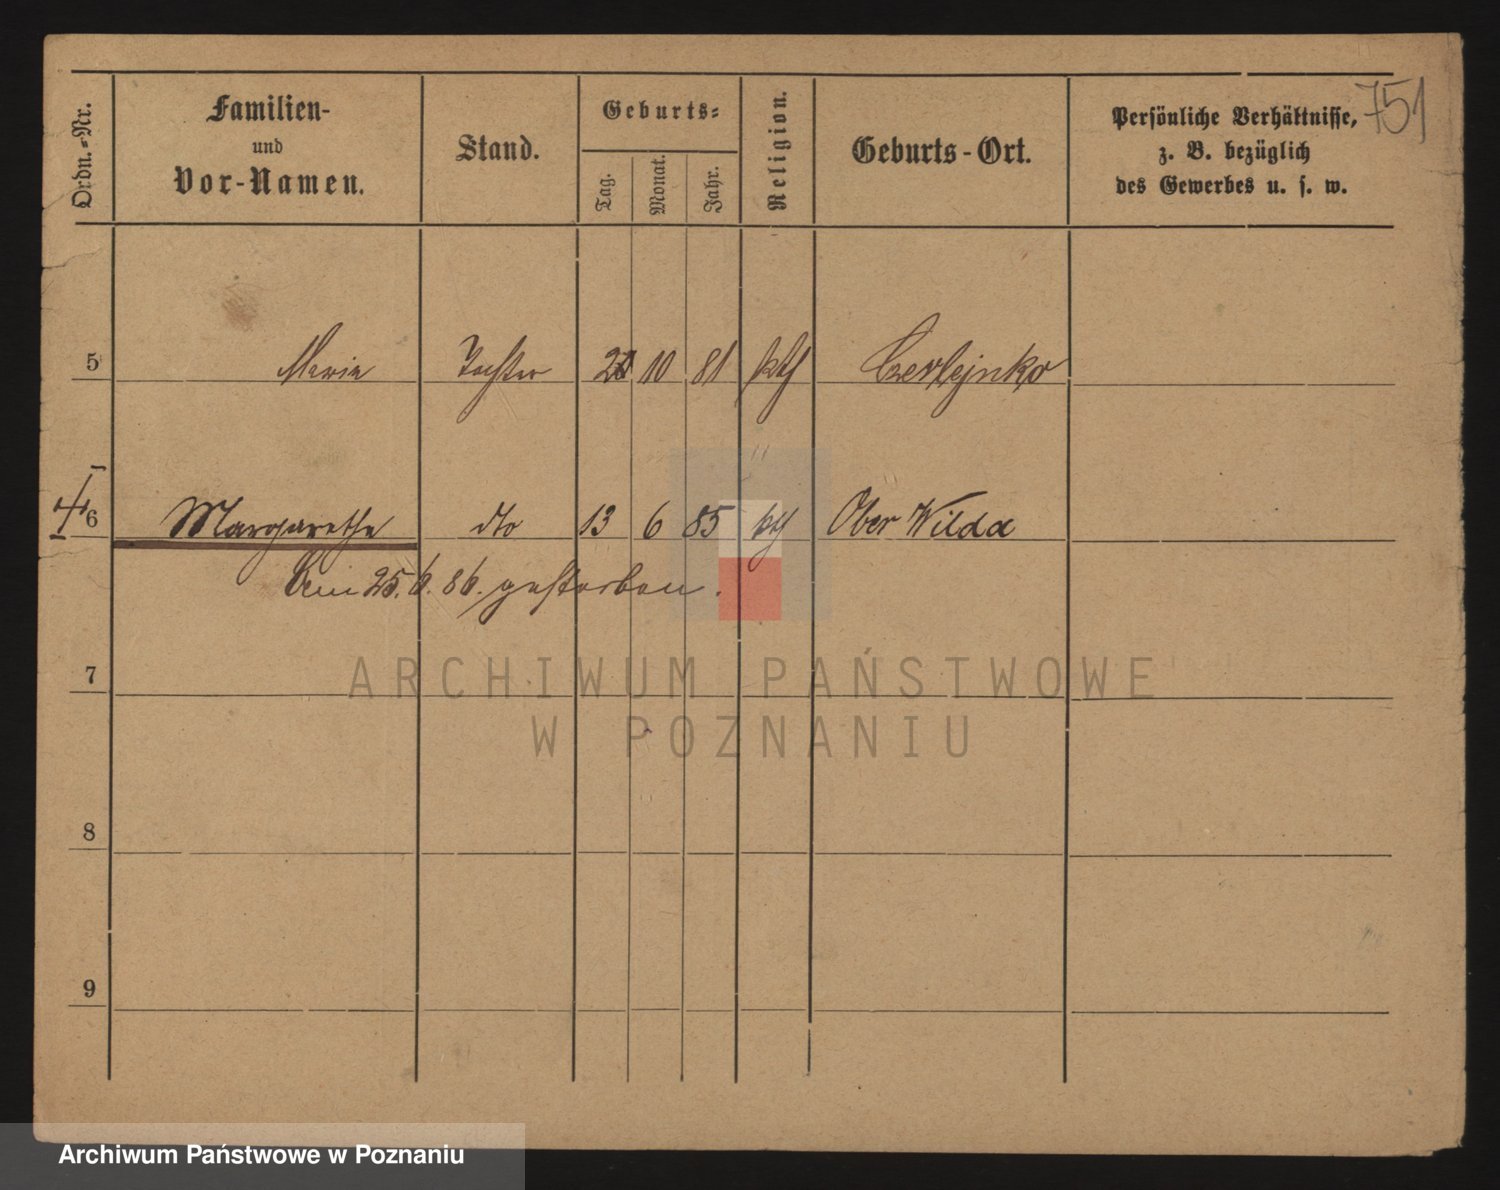 751
Ordn.-Nr.
Familien-
und
Vor-Namen.
Stand.
Geburts-
Tag.
Monat.
Jahr.
Religion.
Geburts-Ort.
Persönliche Verhältnisse,
z. B. bezüglich
des Gewerbes u. s. w.
5 Maria Tochter 10 81 kth Czerlejnko
6 Margarethe dto 13 6 85 kth Ober Wilda
Am 25. 6. 86. gestorben.
7
ARCHIWUM PAŃSTWOWE
W POZNANIU
8
9
Archiwum Państwowe w Poznaniu